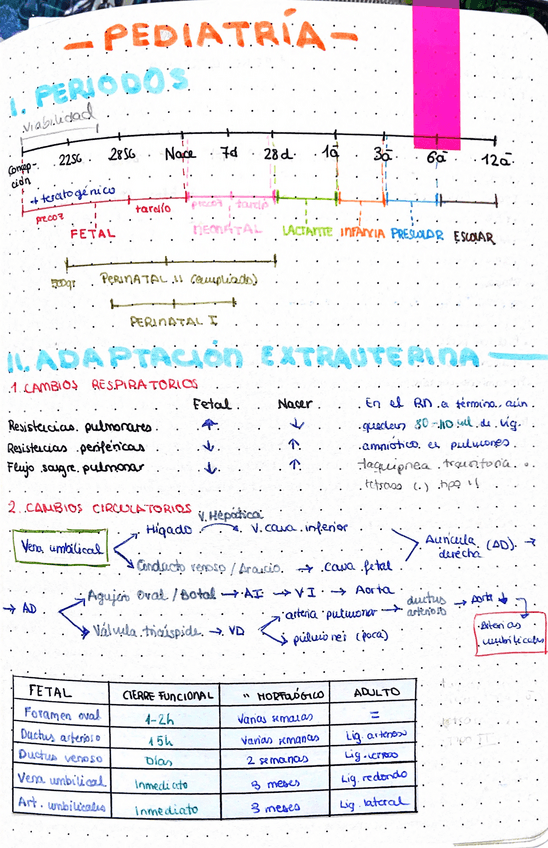 - PEDIATRÍA -
I. PERIODOS
viabilidad
Concep-
ción
22SG 28SG Nace 7d 28d 1a 3a 6a 12a
+ teratogénico
precoz tardío precoz tardío
FETAL NEONATAL LACTANTE INFANCIA PRESCOLAR ESCOLAR
500gr PERINATAL II (ampliado)
PERINATAL I
II. ADAPTACIÓN EXTRAUTERINA
1. CAMBIOS RESPIRATORIOS
Fetal Nacer
Resistencias pulmonares ↑ ↓
Resistencias periféricas ↓ ↑
Flujo sangre pulmonar ↓ ↑
En el RN a término aún
quedan ml de líq.
amniótico en pulmones
taquipnea transitoria o
tetraos (.) tipo II
2. CAMBIOS CIRCULATORIOS
V. Hepática
Vena umbilical
Hígado → V. cava inferior
Conducto venoso / Arancio → cava fetal
Aurícula
derecha (AD). →
→ AD
Agujero Oval / Botal → AI → VI → Aorta
Válvula tricúspide → VD
arteria pulmonar → ductus
arterioso → Aorta ↓
pulmones (poca)
Arterias
umbilicales
FETAL CIERRE FUNCIONAL " MORFOLÓGICO ADULTO
Foramen oval 1-2h Varias semanas =
Ductus arterioso 15h Varias semanas Lig. arterioso
Ductus venoso Días 2 semanas Lig. venoso
Vena umbilical Inmediato meses Lig. redondo
Art. umbilicales Inmediato 3 meses Lig. lateral